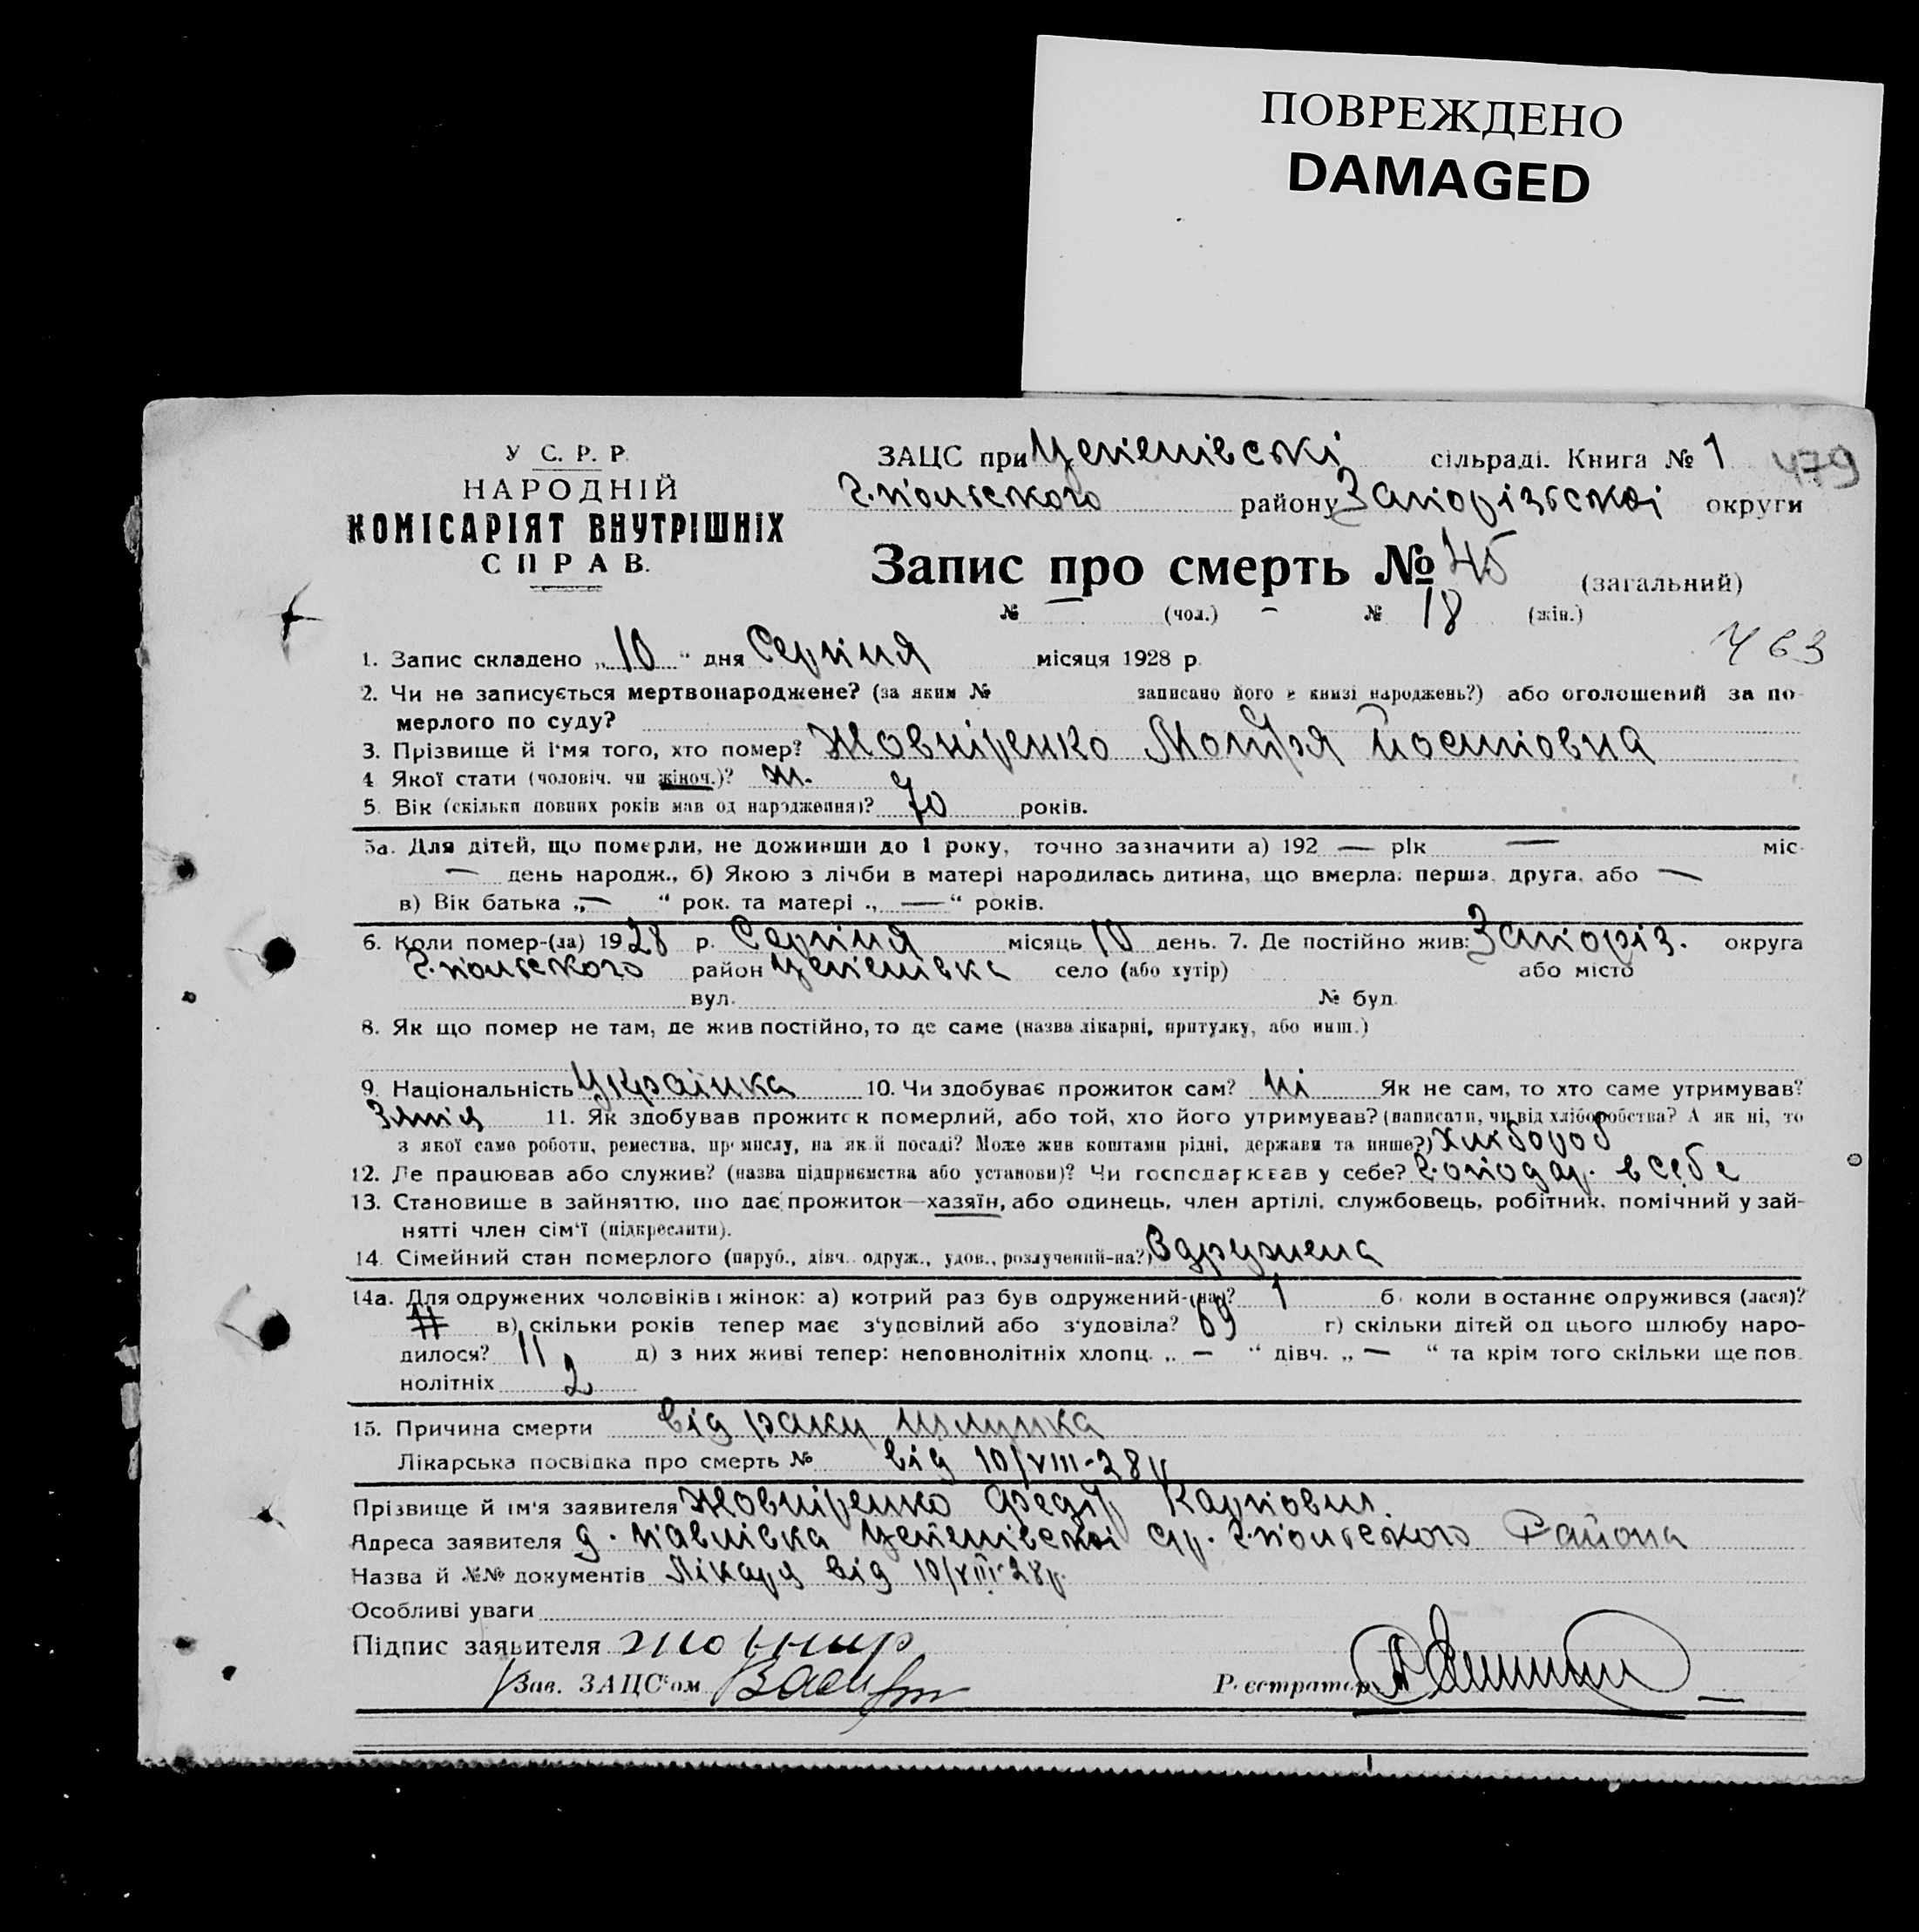 ПОВРЕЖДЕНО
DAMAGED
У С. Р. Р.
НАРОДНІЙ
КОМІСАРІЯТ ВНУТРІШНІХ
СПРАВ.
ЗАЦС при сільраді. Книга № 1 479
г.пільського району Запорізської округи
Запис про смерть № 45 (загальний)
№ — (чол.) – № 18 (жін.)
463
1. Запис складено „10“ дня Серпня місяця 1928 р.
2. Чи не записується мертвонароджене? (за яким № записано його в книзі народжень?) або оголошений за по-
мерлого по суду?
3. Прізвище й ім'я того, хто помер? Жовніренко Мотря Йосиповна
4 Якої стати (чоловіч. чи жіноч.)? ж.
5. Вік (скільки повних років мав од народження)? 70 років.
5а. Для дітей, що померли, не доживши до 1 року, точно зазначити а) 192 — рік — міс.
— день народж., б) Якою з лічби в матері народилась дитина, що вмерла: перша, друга, або —
в) Вік батька „—“ рок. та матері „—“ років.
6. Коли помер-(ла) 1928 р. Серпня місяць 10 день. 7. Де постійно жив: Запоріз. округа
г.пільського район село (або хутір) або місто
вул. № буд.
8. Як що помер не там, де жив постійно, то де саме (назва лікарні, притулку, або инш.)
9. Національність Українка 10. Чи здобуває прожиток сам? ні Як не сам, то хто саме утримував?
11. Як здобував прожиток померлий, або той, хто його утримував? (написати, чи від хліборобства? А як ні, то
з якої саме роботи, ремества, промислу, на якій посаді? Може жив коштами рідні, держави та инше?) хлібороб
12. Де працював або служив? (назва підприємства або установи)? Чи господарював у себе? господар. в себе
13. Становище в зайняттю, що дає прожиток—хазяїн, або одинець, член артілі, службовець, робітник, помічний у зай-
нятті член сім'ї (підкреслити).
14. Сімейний стан померлого (паруб., дівч. одруж., удов., розлучений-на?) Одружена
14а. Для одружених чоловіків і жінок: а) котрий раз був одружений-(на)? 1 б) коли в останнє одружився (лася)?
в) скільки років тепер має з'удовілий або з'удовіла? 69 г) скільки дітей од цього шлюбу наро-
дилося? 11 д) з них живі тепер: неповнолітніх хлопц. „—“ дівч. „—“ та крім того скільки ще пов-
нолітніх 2
15. Причина смерти від раку шлунка
Лікарська посвідка про смерть № від 10/VIII-28р
Прізвище й ім'я заявителя Жовніренко Федір Карпович.
Адреса заявителя д. Павлівка ср. г.пільського Району
Назва й №№ документів Лікаря від 10/VIII-28р.
Особливі уваги
Підпис заявителя Жовнир
Зав. ЗАЦС'ом
Реєстратор